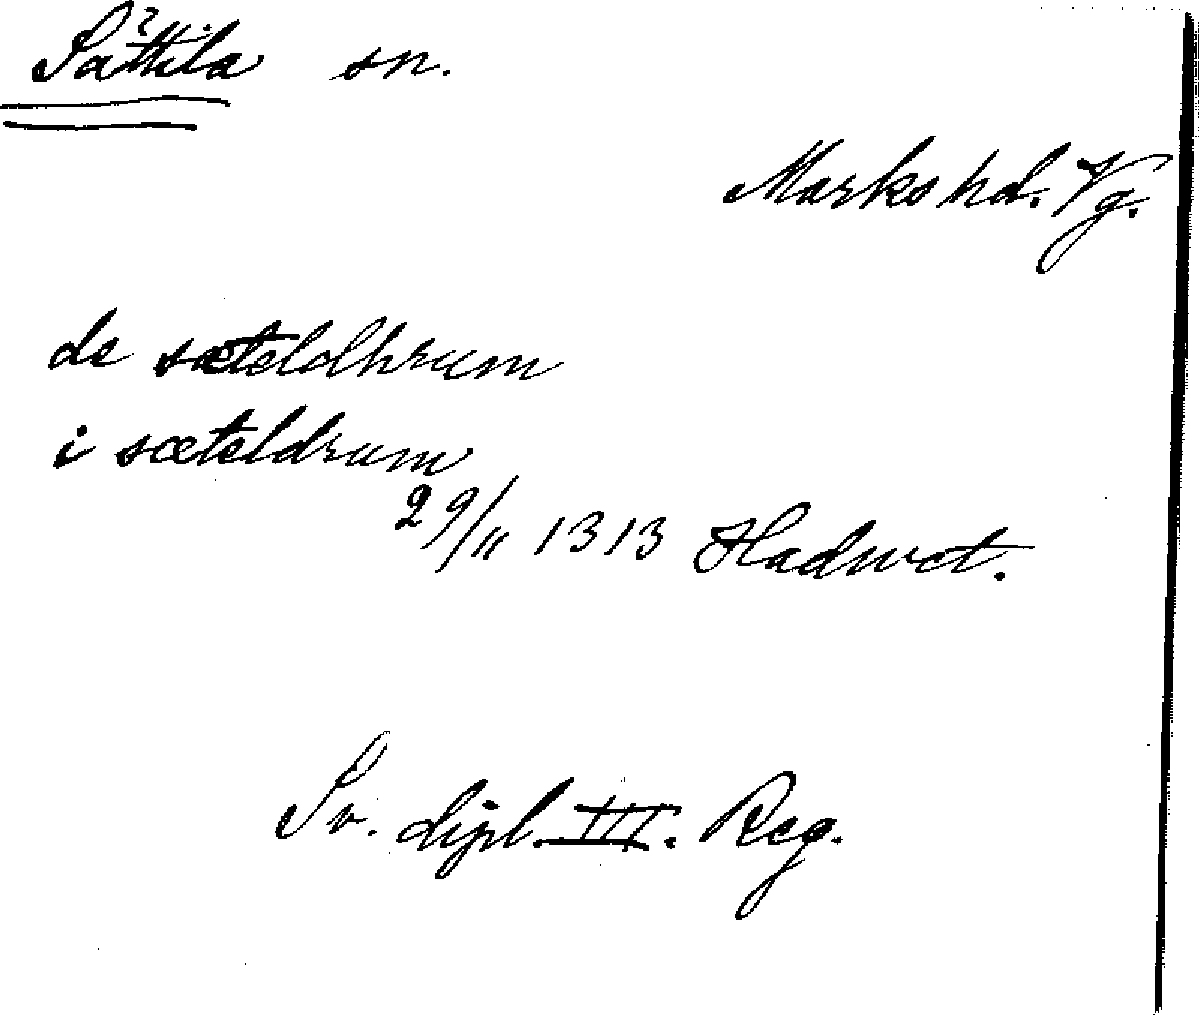 Sättila sn.
Marks hd. Vg.
de sæteldhrum
i sæteldrum
29/11 1313 Hadwct.
Sv. dipl. III. Reg.